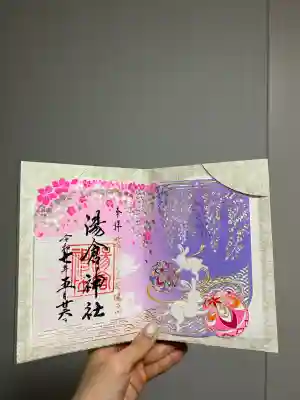 奉拝
湯倉神社
令和七年五月廿八